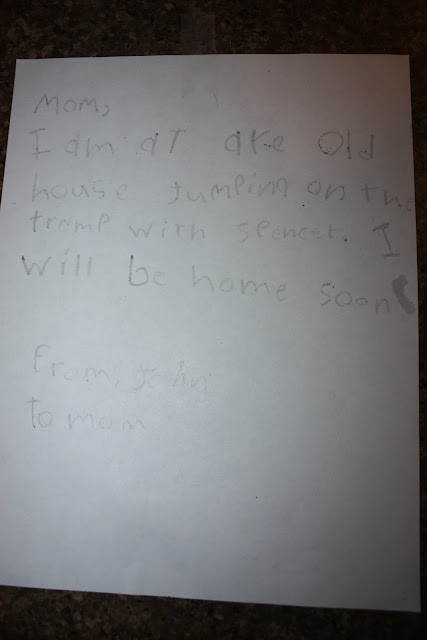 Mom,
I am at are Old
house Jumping on the
tramp with spencer. I
will be home soon
from, John
to mom